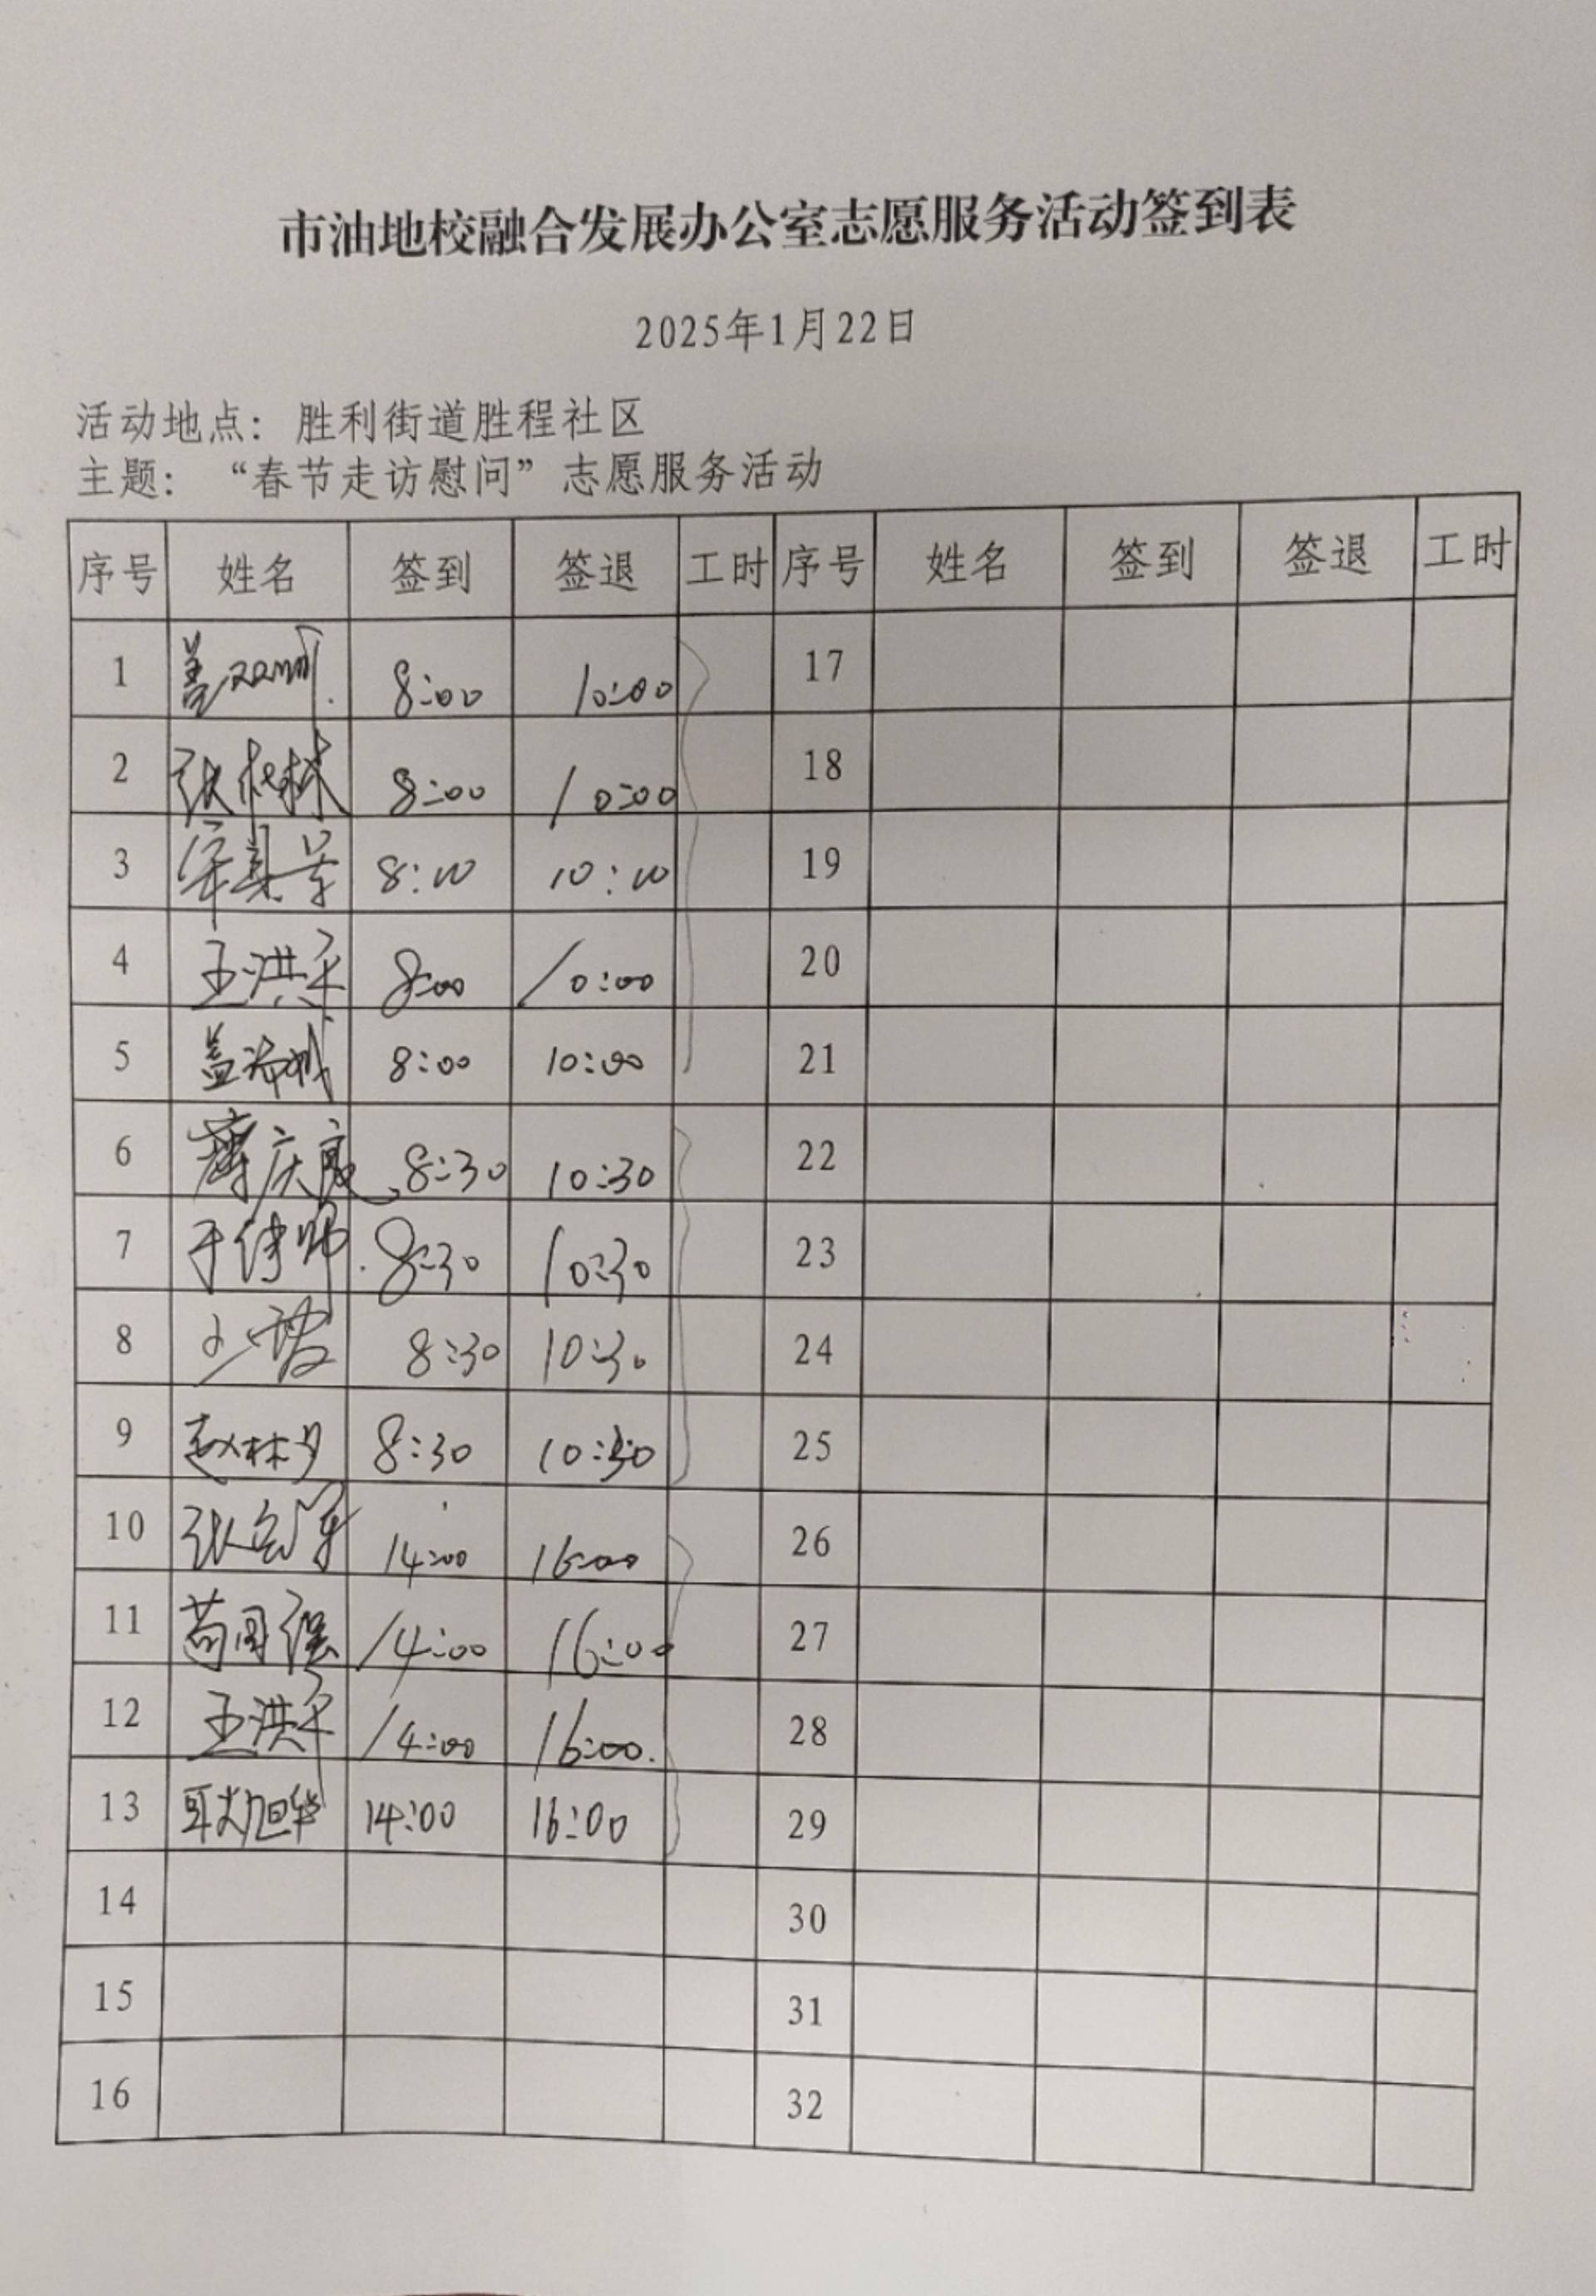 市油地校融合发展办公室志愿服务活动签到表
2025年1月22日
活动地点：胜利街道胜程社区
主题：“春节走访慰问”志愿服务活动
序号 姓名 签到 签退 工时 序号 姓名 签到 签退 工时
1 8:00 10:00 17
2 8:00 10:00 18
3 8:10 10:10 19
4 王洪平 8:00 10:00 20
5 8:00 10:00 21
6 8:30 10:30 22
7 于伟帅 8:30 10:30 23
8 8:30 10:30 24
9 赵林夕 8:30 10:30 25
10 14:00 16:00 26
11 苟国强 14:00 16:00 27
12 王洪平 14:00 16:00 28
13 14:00 16:00 29
14 30
15 31
16 32